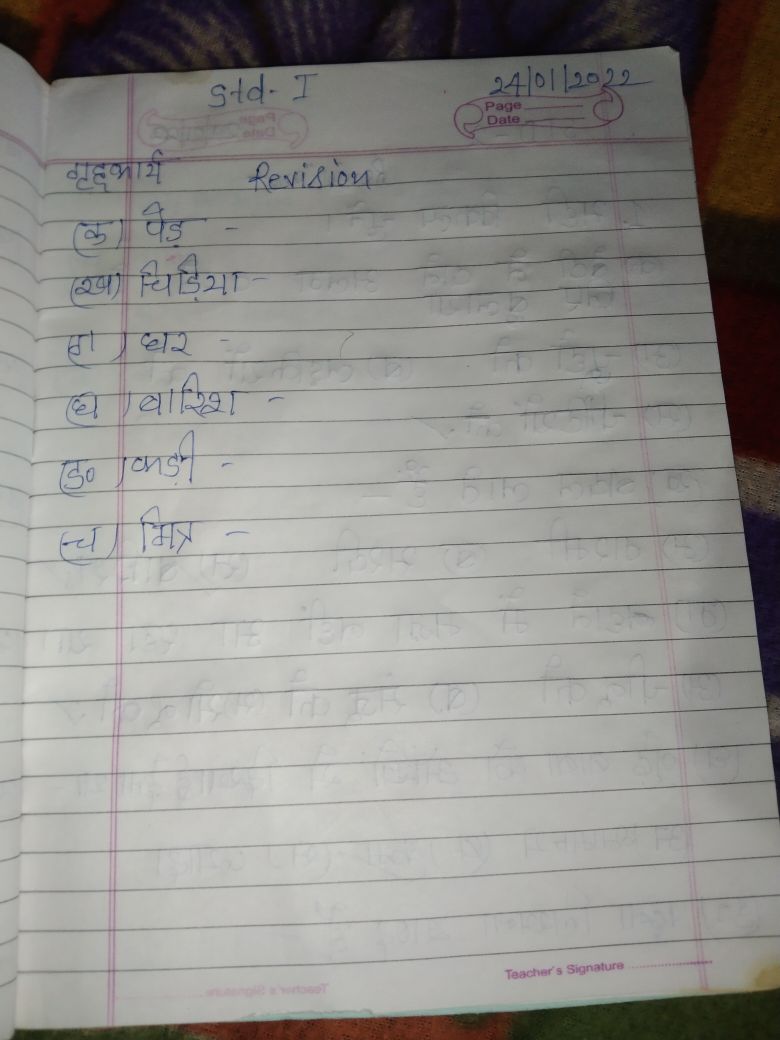 Std- I
24/01/2022
Page
Date
गृहकार्य Revision
(क) पेड़ -
(ख) चिड़िया -
ग) घर -
(घ) बारिश -
ङ) कड़ी -
(च) मित्र -
Teacher's Signature